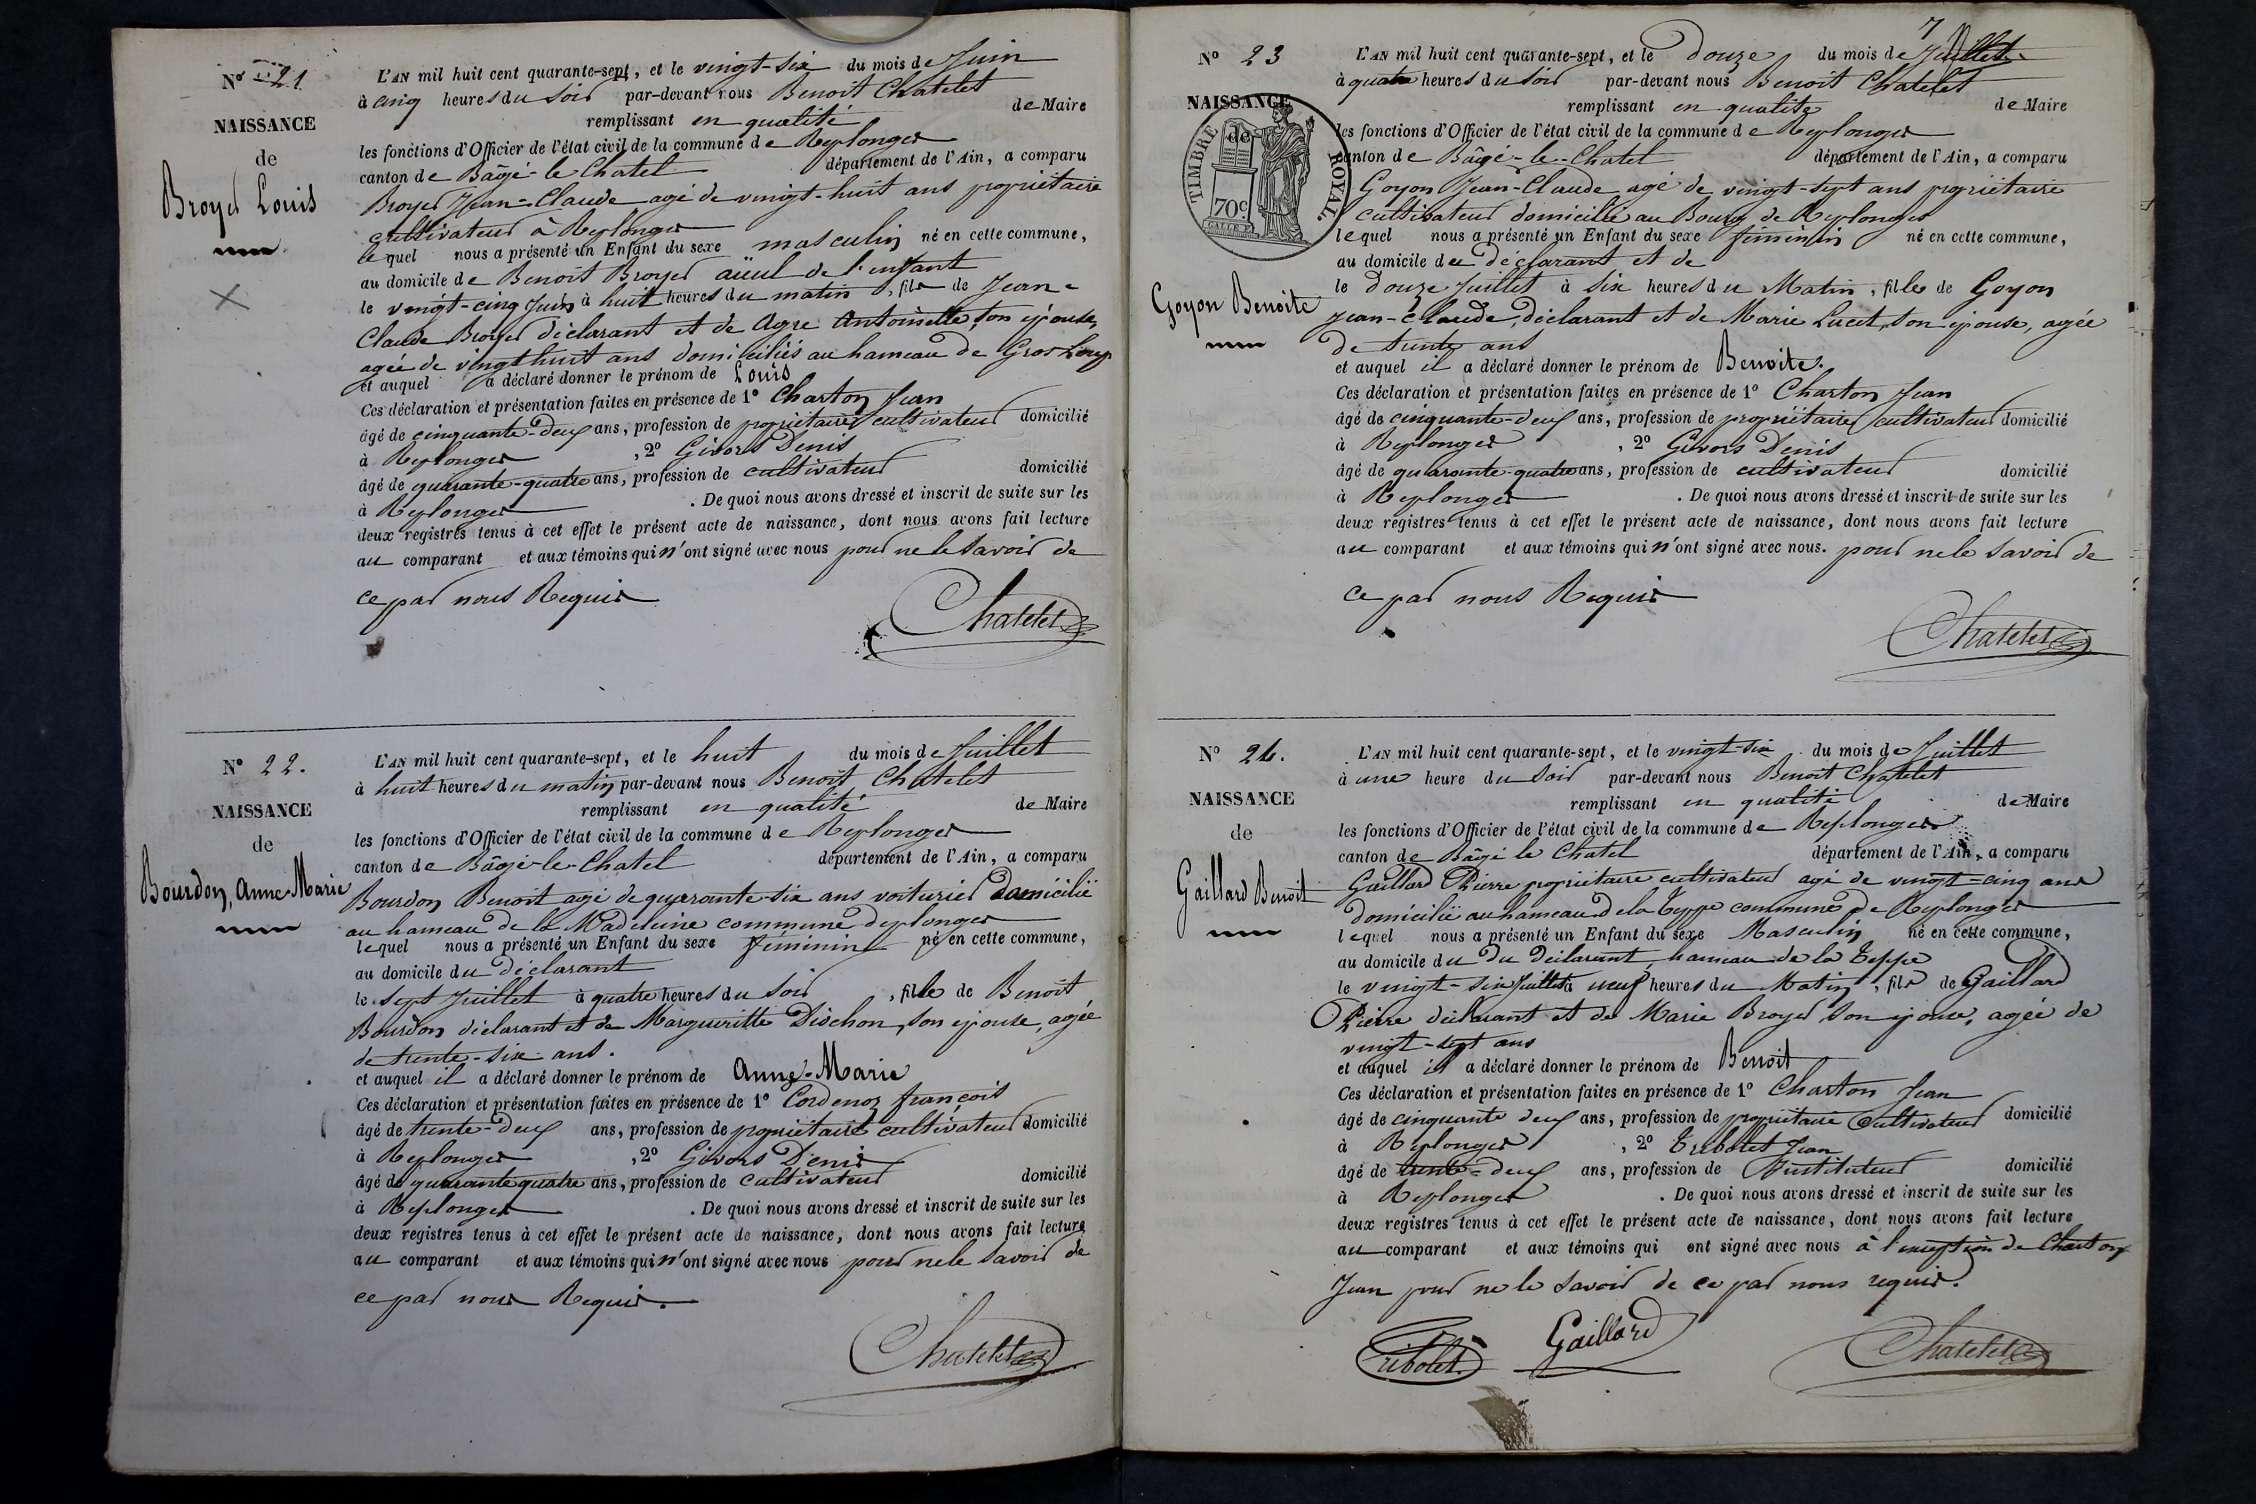 N° 21
NAISSANCE
de
Broyer Louis
L'AN mil huit cent quarante-sept, et le vingt-six du mois de Juin
à cinq heures du soir par-devant nous Benoit Chatelet
remplissant en qualité de Maire
les fonctions d'Officier de l'état civil de la commune de Replonges
canton de Bâgé-le-Chatel département de l'Ain, a comparu
Broyer Jean-Claude agé de vingt-huit ans propriétaire
cultivateur à Replonges
lequel nous a présenté un Enfant du sexe masculin né en cette commune,
au domicile de Benoit Broyer aïeul de l'enfant
le vingt-cinq Juin à huit heures du matin, fils de Jean-
Claude Broyer déclarant et de Agre Antoinette, son épouse,
agée de vingt huit ans domiciliés au hameau de Gros Loup
et auquel a déclaré donner le prénom de Louis
Ces déclaration et présentation faites en présence de 1° Charton Jean
âgé de cinquante-deux ans, profession de propriétaire cultivateur domicilié
à Replonges, 2° Givors Denis
âgé de quarante-quatre ans, profession de cultivateur domicilié
à Replonges. De quoi nous avons dressé et inscrit de suite sur les
deux registres tenus à cet effet le présent acte de naissance, dont nous avons fait lecture
au comparant et aux témoins qui n'ont signé avec nous pour ne le savoir de
ce par nous Requis
Chatelet
N° 22.
NAISSANCE
de
Bourdon, Anne-Marie
L'AN mil huit cent quarante-sept, et le huit du mois de Juillet
à huit heures du matin par-devant nous Benoit Chatelet
remplissant en qualité de Maire
les fonctions d'Officier de l'état civil de la commune de Replonges
canton de Bâgé-le-Chatel département de l'Ain, a comparu
Bourdon Benoit agé de quarante-six ans voiturier domicilié
au hameau de la Madeleine commune deplonges
lequel nous a présenté un Enfant du sexe féminin né en cette commune,
au domicile du déclarant
le sept Juillet à quatre heures du soir, fille de Benoit
Bourdon déclarant et de Margueritte Diochon, son épouse, agée
de trente-six ans.
et auquel il a déclaré donner le prénom de Anne-Marie
Ces déclaration et présentation faites en présence de 1° Cordenoz françois
âgé de trente-deux ans, profession de propriétaire cultivateur domicilié
à Replonges, 2° Givors Denis
âgé de quarante quatre ans, profession de cultivateur domicilié
à Replonges. De quoi nous avons dressé et inscrit de suite sur les
deux registres tenus à cet effet le présent acte de naissance, dont nous avons fait lecture
au comparant et aux témoins qui n'ont signé avec nous pour ne le savoir de
ce par nous Requis.
Chatelet
7
N° 23
NAISSANCE
de
TIMBRE ROYAL
70c
Goyon Benoite
L'AN mil huit cent quarante-sept, et le douze du mois de Juillet
à quatre heures du soir par-devant nous Benoit Chatelet
remplissant en qualité de Maire
les fonctions d'Officier de l'état civil de la commune de Replonges
canton de Bâgé-le-Chatel département de l'Ain, a comparu
Goyon Jean-Claude agé de vingt-sept ans propriétaire
cultivateur domicilié au Bourg de Replonges
lequel nous a présenté un Enfant du sexe féminin né en cette commune,
au domicile du déclarant et de
le douze Juillet à six heures du Matin, fille de Goyon
Jean-Claude, déclarant et de Marie Lucet, son épouse, agée
de trente ans
et auquel il a déclaré donner le prénom de Benoite.
Ces déclaration et présentation faites en présence de 1° Charton Jean
âgé de cinquante-deux ans, profession de propriétaire cultivateur domicilié
à Replonges, 2° Givors Denis
âgé de quarante-quatre ans, profession de cultivateur domicilié
à Replonges. De quoi nous avons dressé et inscrit de suite sur les
deux registres tenus à cet effet le présent acte de naissance, dont nous avons fait lecture
au comparant et aux témoins qui n'ont signé avec nous. pour ne le savoir de
ce par nous Requis
Chatelet
N° 24.
NAISSANCE
de
Gaillard Benoit
L'AN mil huit cent quarante-sept, et le vingt-six du mois de Juillet
à une heure du soir par-devant nous Benoit Chatelet
remplissant en qualité de Maire
les fonctions d'Officier de l'état civil de la commune de Replonges
canton de Bâgé le Chatel département de l'Ain, a comparu
Gaillard Pierre propriétaire cultivateur agé de vingt-cinq ans
domicilié au hameau de la Teppe commune de Replonges
lequel nous a présenté un Enfant du sexe Masculin né en cette commune,
au domicile du du déclarant, hameau de la Teppe
le vingt-six Juillet à neuf heures du Matin, fils de Gaillard
Pierre déclarant et de Marie Broyer son épouse, agée de
vingt-sept ans
et auquel il a déclaré donner le prénom de Benoit
Ces déclaration et présentation faites en présence de 1° Charton Jean
âgé de cinquante deux ans, profession de propriétaire Cultivateur domicilié
à Replonges, 2° Tribolet Jean
âgé de trente-deux ans, profession de instituteur domicilié
à Replonges. De quoi nous avons dressé et inscrit de suite sur les
deux registres tenus à cet effet le présent acte de naissance, dont nous avons fait lecture
au comparant et aux témoins qui ont signé avec nous à l'exception de Charton
Jean pour ne le savoir de ce par nous requis.
Tribolet Gaillard Chatelet